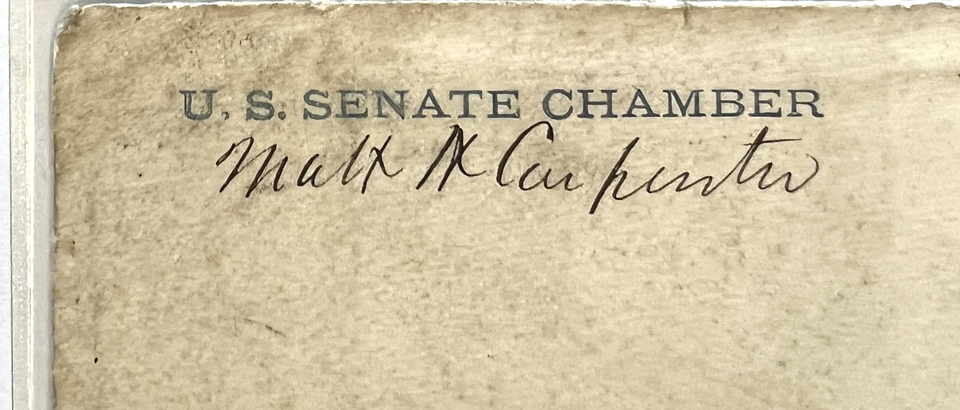 U. S. SENATE CHAMBER
Matt H Carpenter